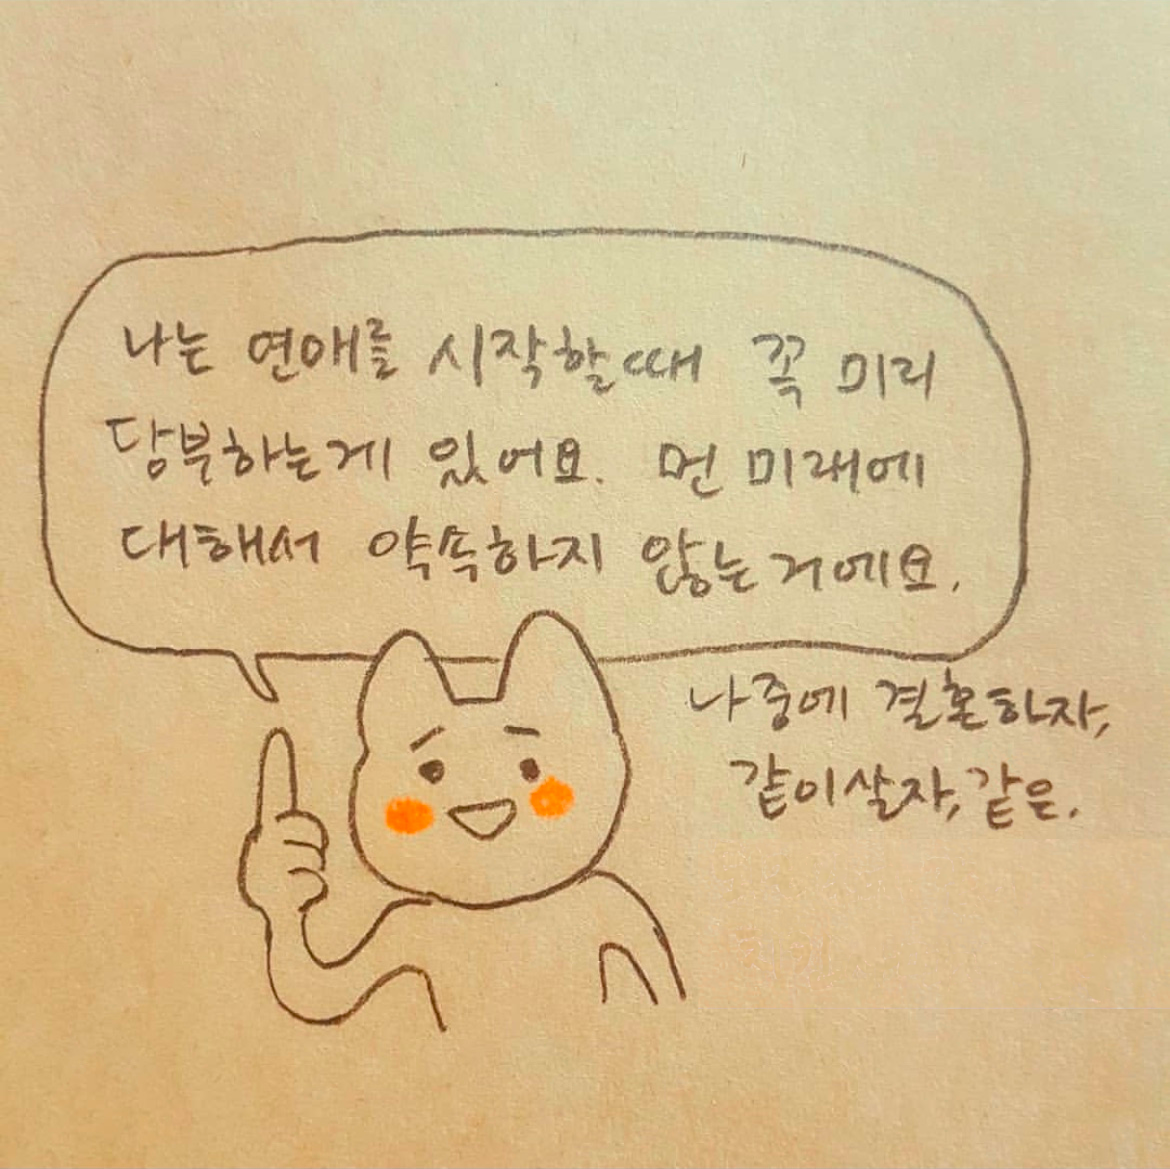 나는 연애를 시작할때 꼭 미리
당부하는게 있어요. 먼 미래에
대해서 약속하지 않는거에요.
나중에 결혼하자,
같이살자, 같은.